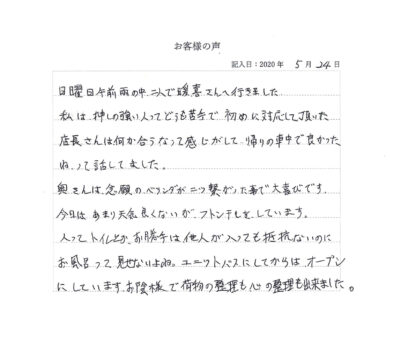 お客様の声
記入日:2020年 5月 24日
日曜日午前雨の中二人で暖喜さんへ行きました
私は押しの強い人ってどうも苦手で初めに対応して頂いた
店長さんは何か合うなって感じがして帰りの車中で良かった
ねって話してました。
奥さんは念願のベランダが二つ繋がった事で大喜びです。
今日はあまり天気良くないがフトン干しをしています。
人ってトイレとかお勝手は他人が入っても抵抗ないのに
お風呂って見せないよね。ユニットバスにしてからはオープン
にしていますお陰様で荷物の整理も心の整理も出来ました。